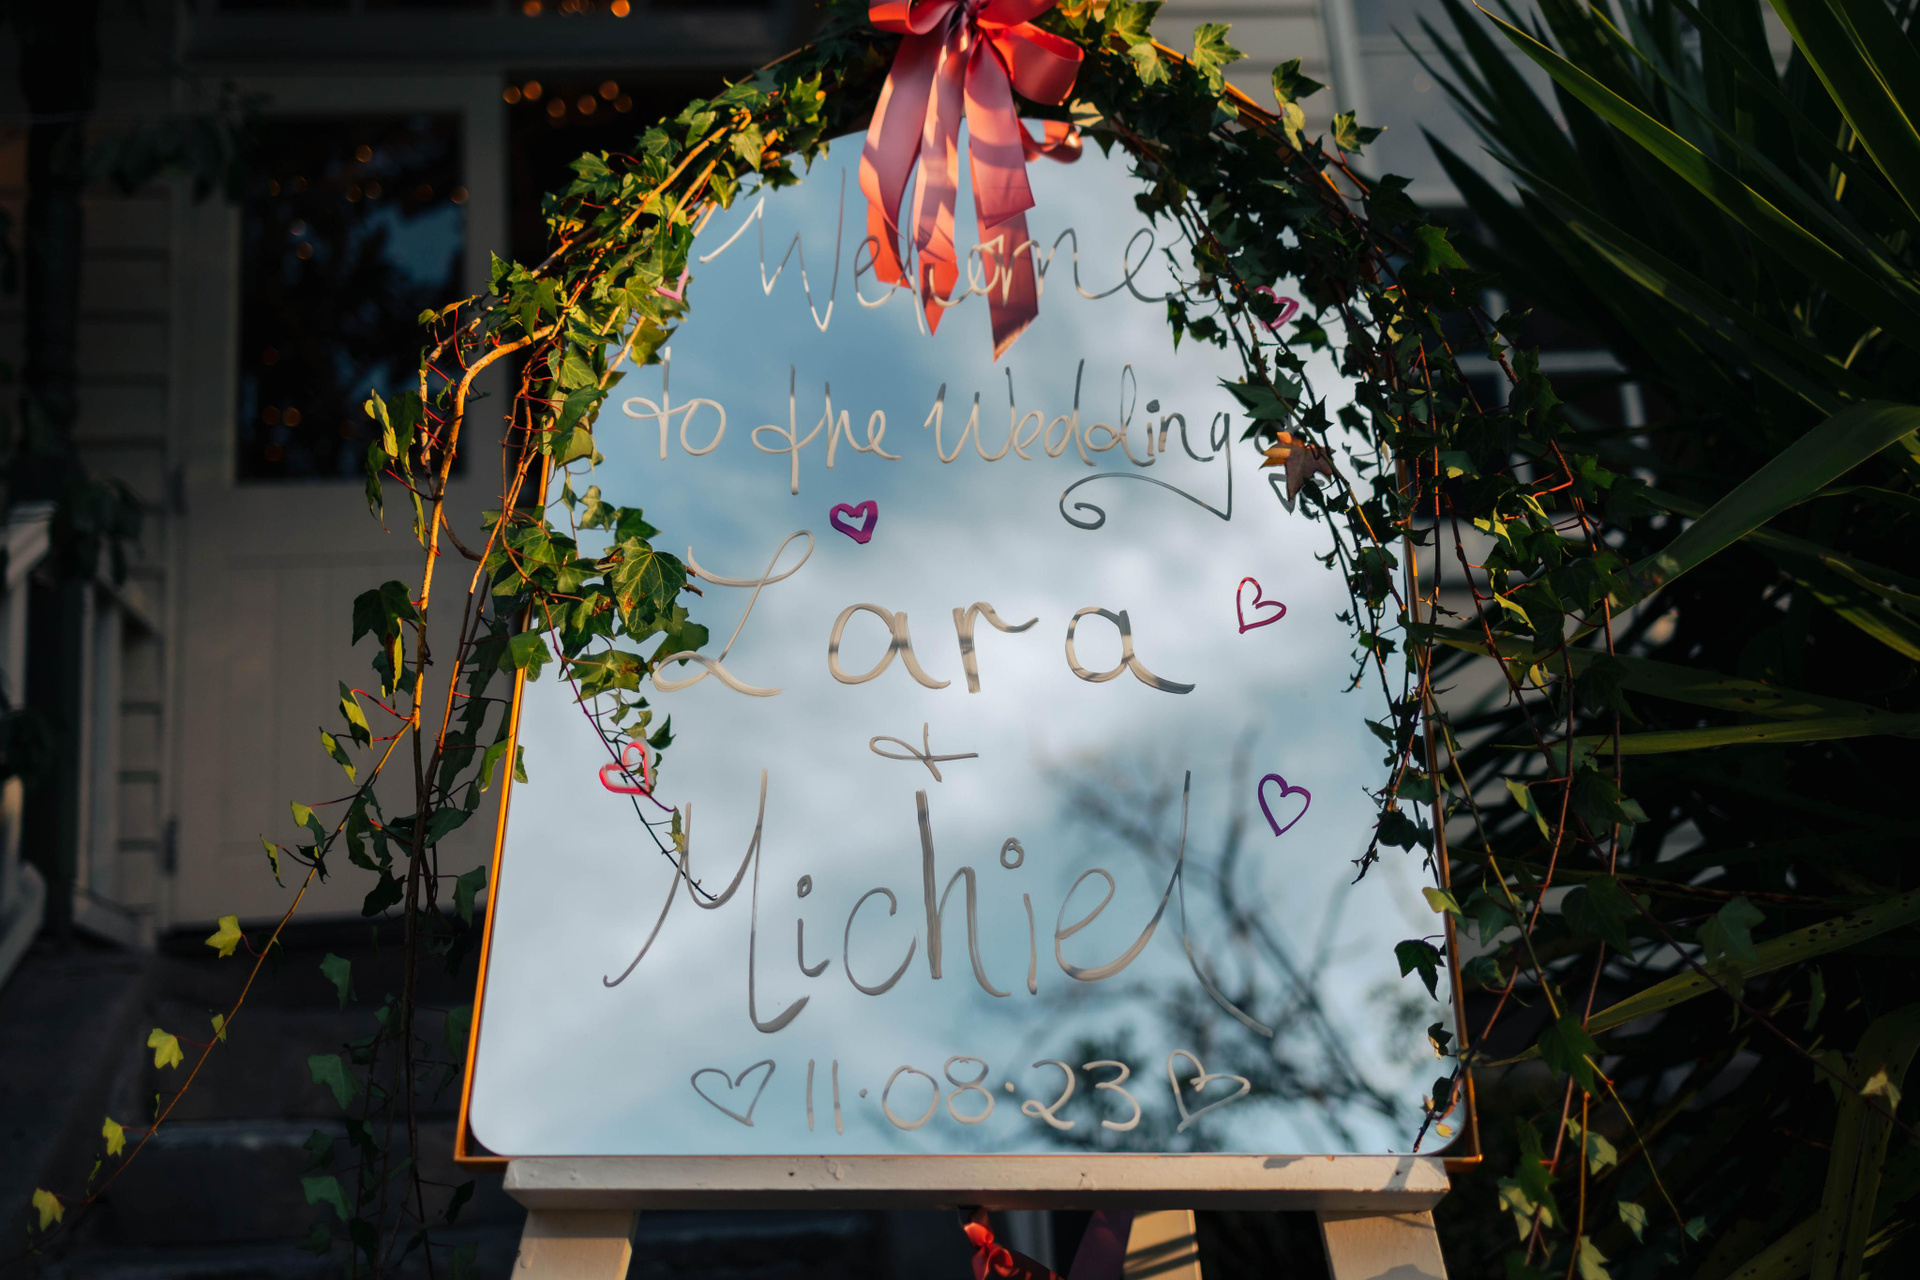 Welcome
to the Wedding
Lara
+
Michiel
11.08.23